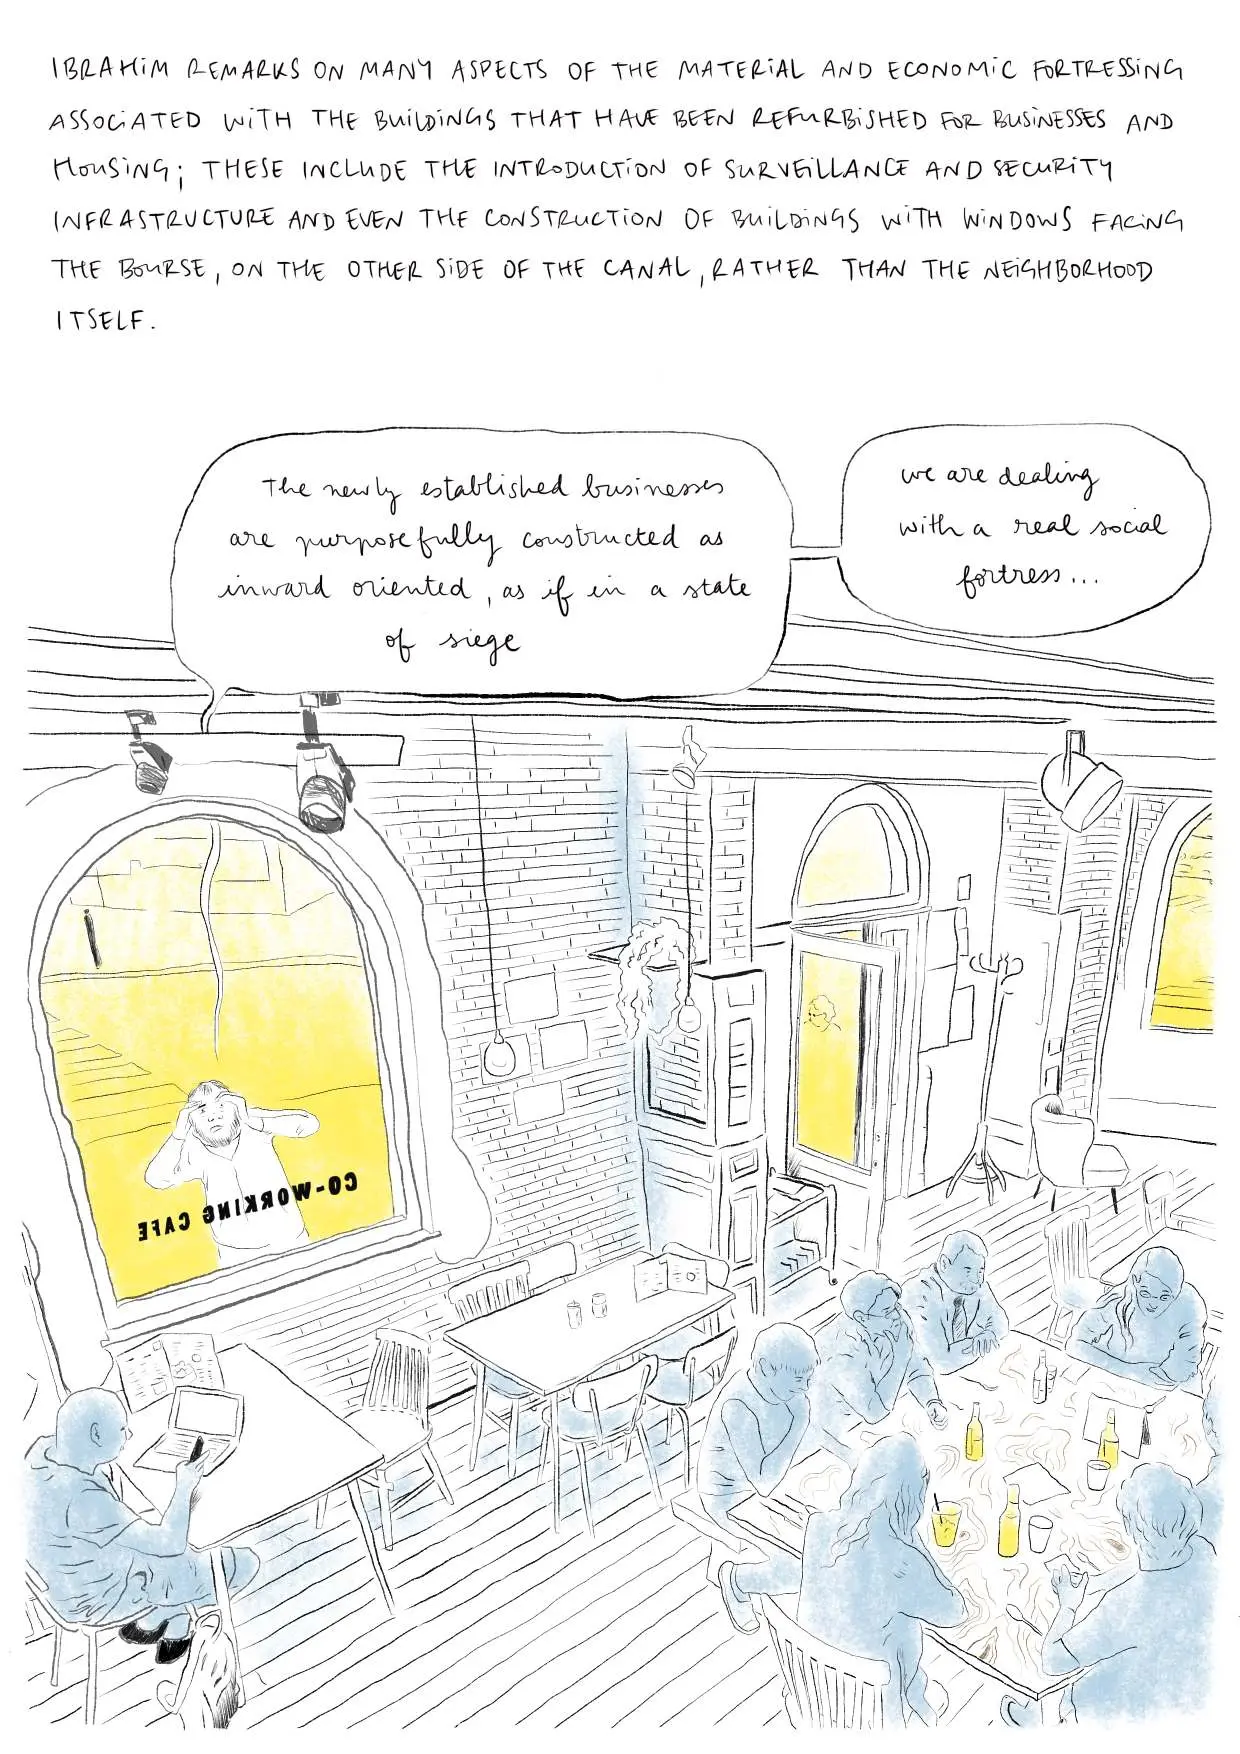 IBRAHIM REMARKS ON MANY ASPECTS OF THE MATERIAL AND ECONOMIC FORTRESSING
ASSOCIATED WITH THE BUILDINGS THAT HAVE BEEN REFURBISHED FOR BUSINESSES AND
HOUSING; THESE INCLUDE THE INTRODUCTION OF SURVEILLANCE AND SECURITY
INFRASTRUCTURE AND EVEN THE CONSTRUCTION OF BUILDINGS WITH WINDOWS FACING
THE BOURSE, ON THE OTHER SIDE OF THE CANAL, RATHER THAN THE NEIGHBORHOOD
ITSELF.
The newly established businesses
are purposefully constructed as
inward oriented, as if in a state
of siege
we are dealing
with a real social
fortress...
CO-WORKING CAFE